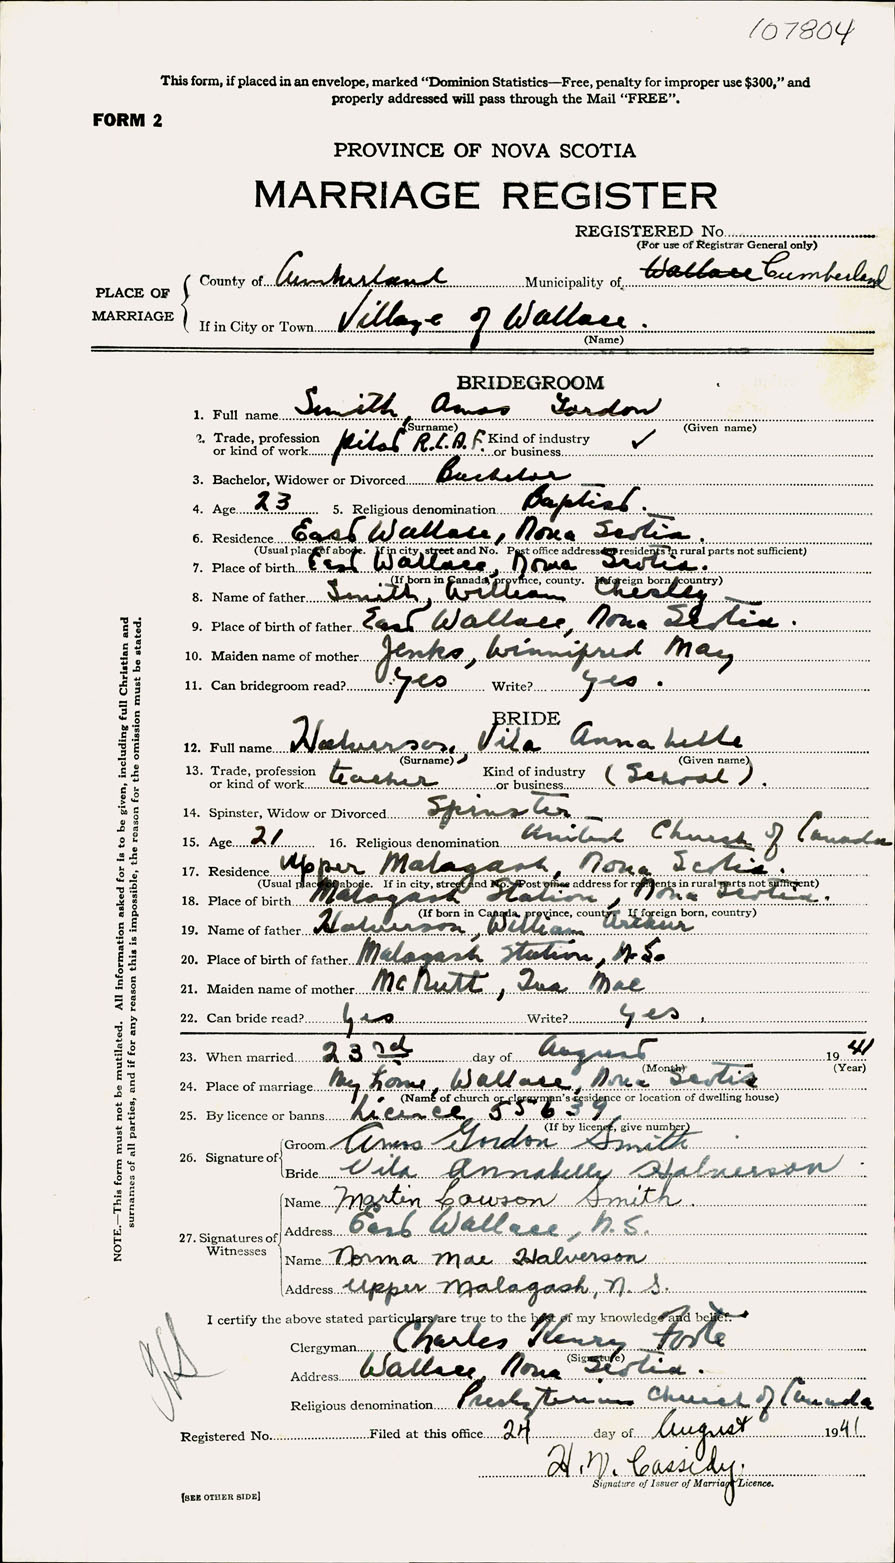 107804
This form, if placed in an envelope, marked “Dominion Statistics—Free, penalty for improper use $300,” and
properly addressed will pass through the Mail “FREE”.
FORM 2
PROVINCE OF NOVA SCOTIA
MARRIAGE REGISTER
REGISTERED No.
(For use of Registrar General only)
PLACE OF MARRIAGE
County of Cumberland Municipality of Wallace Cumberland
If in City or Town Village of Wallace.
(Name)
BRIDEGROOM
1. Full name Smith, Amos Gordon
(Surname) (Given name)
2. Trade, profession or kind of work pilot R.C.A.F. Kind of industry or business ✓
3. Bachelor, Widower or Divorced Bachelor
4. Age 23 5. Religious denomination Baptist.
6. Residence East Wallace, Nova Scotia.
(Usual place of abode. If in city, street and No. Post office address for residents in rural parts not sufficient)
7. Place of birth East Wallace, Nova Scotia.
(If born in Canada, province, county. If foreign born, country)
8. Name of father Smith, William Chesley
9. Place of birth of father East Wallace, Nova Scotia.
10. Maiden name of mother Jenks, Winnifred May
11. Can bridegroom read? Yes Write? Yes.
BRIDE
12. Full name Halverson, Vila Annabelle
(Surname) (Given name)
13. Trade, profession or kind of work teacher Kind of industry or business (School).
14. Spinster, Widow or Divorced Spinster
15. Age 21 16. Religious denomination United Church of Canada
17. Residence Upper Malagash, Nova Scotia.
(Usual place of abode. If in city, street and No. Post office address for residents in rural parts not sufficient)
18. Place of birth Malagash Station, Nova Scotia.
(If born in Canada, province, county. If foreign born, country)
19. Name of father Halverson, William Arthur
20. Place of birth of father Malagash Station, N.S.
21. Maiden name of mother McNutt, Iva Mae
22. Can bride read? Yes Write? Yes.
23. When married 23rd day of August 1941
(Month) (Year)
24. Place of marriage My home, Wallace, Nova Scotia
(Name of church or clergyman's residence or location of dwelling house)
25. By licence or banns Licence 55639
(If by licence, give number)
26. Signature of Groom Amos Gordon Smith
Bride Vila Annabelly Halverson
27. Signatures of Witnesses
Name Martin Cowson Smith.
Address East Wallace, N.S.
Name Norma Mae Halverson
Address Upper Malagash, N.S.
I certify the above stated particulars are true to the best of my knowledge and belief.
Clergyman Charles Henry Foote
(Signature)
Address Wallace, Nova Scotia.
Religious denomination Presbyterian Church of Canada
Registered No. Filed at this office 24 day of August 1941
H. W. Cassidy.
Signature of Issuer of Marriage Licence.
[SEE OTHER SIDE]
NOTE.—This form must not be mutilated. All information asked for is to be given, including full Christian and
surnames of all parties, and if for any reason this is impossible, the reason for the omission must be stated.